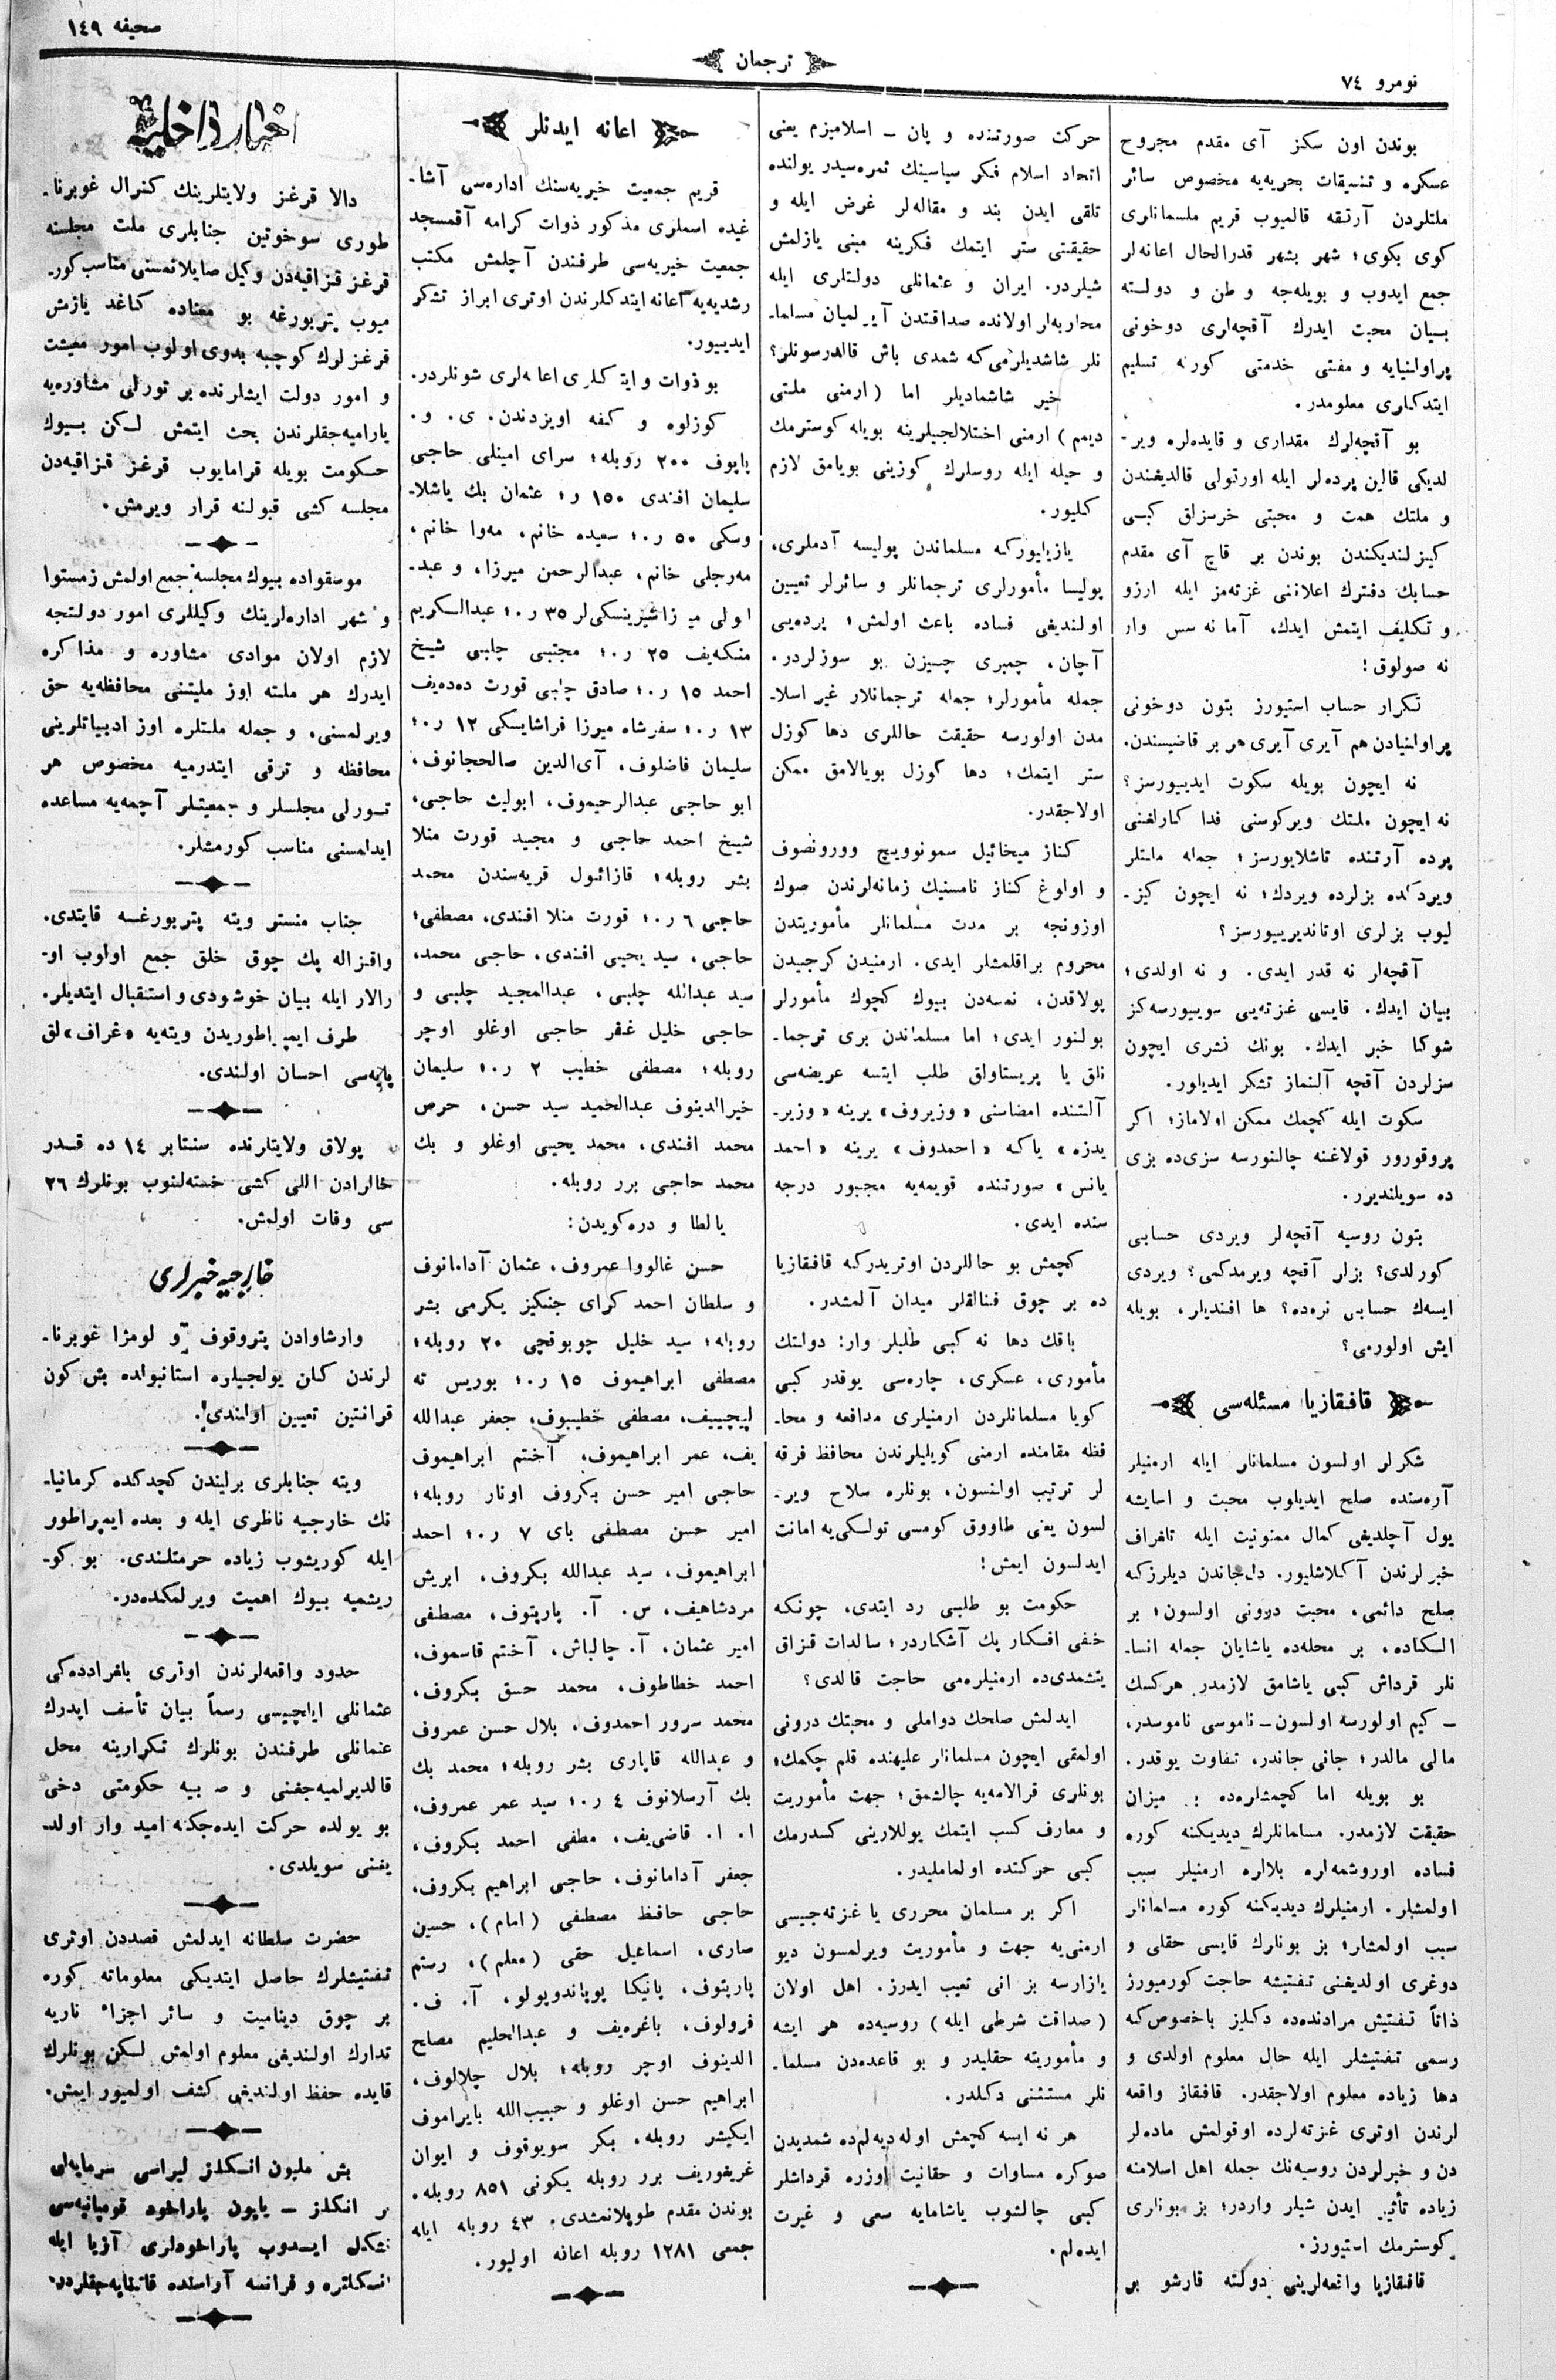 نومرو ٧٤
ترجمان
صحیفه ١٤٩
بوندن اون سكز آی مقدم مجروح
عسكره و تنسیقات بحریه‌یه مخصوص سائر
ملتلردن آرتقه قالمیوب قریم ملسمانلری
كوی بكوی؛ شهر بشهر قدرالحال اعانه‌لر
جمع ایدوب و بویله‌جه وطن و دولته
بیان محبت ایدرك آقچه‌لری دوخونی
پراولنیایه و مفتی خدمتی كورنه تسلیم
ایتدكلری معلومدر.
بو آقچه‌لرك مقداری و قایده‌لره ویر-
لدیكی قالین پرده‌لر ایله اورتولی قالدیغندن
و ملتك همت و محبتی خرسزلق كبی
كیزلندیكندن بوندن بر قاچ آی مقدم
حسابك دفترك اعلاننی غزته‌مز ایله ارزو
و تكلیف ایتمش ایدك، آما نه سس وار
نه صولوق!
تكرار حساب استیورز بتون دوخونی
پراولنیادن هم آیری آیری هر بر قاضیسندن.
نه ایچون بویله سكوت ایدییورسز؟
نه ایچون ملتك ویركوسنی فدا كارلغنی
پرده آرتنده تاشلایورسز؛ جمله ملتلر
ویردكده بزلرده ویردك؛ نه ایچون كیز-
لیوب بزلری اوتاندیرییورسز؟
آقچه‌لر نه قدر ایدی. و نه اولدی؛
بیان ایدك. قایسی غزته‌یی سوییورسه‌كز
شوكا خبر ایدك. بونك نشری ایچون
سزلردن آقچه آلنماز تشكر ایدیلور.
سكوت ایله كچمك ممكن اولاماز؛ اكر
پروقورور قولاغنه چالنورسه سزی‌ده بزی
ده سویلندیرر.
بتون روسیه آقچه‌لر ویردی حسابی
كورلدی؟ بزلر آقچه ویرمدكمی؟ ویردی
ایسه‌ك حسابی نره‌ده؟ ها افندیلر، بویله
ایش اولورمی؟
قافقازیا مسئله‌سی
شكرلر اولسون مسلمانلر ایله ارمنیلر
آره‌سنده صلح ایدیلوب محبت و اسایشه
یول آچلدیغی كمال ممنونیت ایله تلغراف
خبرلرندن آكلاشلیور. دل‌جاندن دیلرزكه
صلح دائمی، محبت درونی اولسون؛ بر
الكاده، بر محله‌ده یاشایان جمله انسا-
نلر قرداش كبی یاشامق لازمدر هركسك
ـ كیم اولورسه اولسون ـ ناموسی ناموسدر،
مالی مالدر؛ جانی جاندر، تفاوت یوقدر.
بو بویله اما كچمشلرده بر میزان
حقیقت لازمدر. مسلمانلرك دیدیكنه كوره
فساده اوروشمه‌لره بلالره ارمنیلر سبب
اولمشلر. ارمنیلرك دیدیكنه كوره مسلمانلر
سبب اولمشلر؛ بز بونلرك قایسی حقلی و
دوغری اولدیغنی تفتیشه حاجت كورمیورز
ذاتاً تفتیش مرادنده‌ده دكلیز باخصوص‌كه
رسمی تفتیشلر ایله حال معلوم اولدی و
دها زیاده معلوم اولاجقدر. قافقاز واقعه
لرندن اوتری غزته‌لرده اوقولمش ماده‌لر
دن و خبرلردن روسیه‌نك جمله اهل اسلامنه
زیاده تأثیر ایدن شیلر واردر؛ بز بونلری
كوسترمك استیورز.
قافقازیا واقعه‌لرینی دولته قارشو بر
حركت صورتنده و پان ـ اسلامیزم یعنی
اتحاد اسلام فكر سیاسینك ثمره‌سیدر یولنده
تلقی ایدن بند و مقاله‌لر غرض ایله و
حقیقتی ستر ایتمك فكرینه مبنی یازلمش
شیلردر. ایران و عثمانلی دولتلری ایله
محاربه‌لر اولانده صداقتدن آیرلمیان مسلما-
نلر شاشدیلرمی‌كه شمدی باش قالدرسونلر؟
خیر شاشمادیلر اما (ارمنی ملتی
دیمم) ارمنی اختلالجیلرینه بویله كوسترمك
و حیله ایله روسلرك كوزینی بویامق لازم
كلیور.
یازیلیوركه مسلماندن پولیسه آدملری،
پولیسا مأمورلری ترجمانلر و سائرلر تعیین
اولندیغی فساده باعث اولمش؛ پرده‌یی
آچان، چمبری چیزن بو سوزلردر.
جمله مأمورلر؛ جمله ترجمانلار غیر اسلا-
مدن اولورسه حقیقت حاللری دها كوزل
ستر ایتمك؛ دها كوزل بویالامق ممكن
اولاجقدر.
كناز میخائیل سمونوویچ وورونصوف
و اولوغ كناز نامسنیك زمانه‌لرندن صوك
اوزونجه بر مدت مسلمانلر مأموریتدن
محروم براقلمشلر ایدی. ارمنیدن كرجیدن
پولاقدن، نمسه‌دن بیوك كچوك مأمورلر
بولنور ایدی؛ اما مسلماندن بری ترجما-
نلق یا پریستاولق طلب ایتسه عریضه‌سی
آلتنده امضاسنی «وزیروف» یرینه «وزیر-
یدزه» یاكه «احمدوف» یرینه «احمد
یانس» صورتنده قویمه‌یه مجبور درجه
سنده ایدی.
كچمش بو حاللردن اوتریدركه قافقازیا
ده بر چوق فنالقلر میدان آلمشدر.
باقك دها نه كبی طلبلر وار: دولتك
مأموری، عسكری، چاره‌سی یوقدر كبی
كویا مسلمانلردن ارمنیلری مدافعه و محا-
فظه مقامنده ارمنی كویلیلرندن محافظ فرقه
لر ترتیب اولنسون، بونلره سلاح ویر-
لسون یعنی طاووق كومسی تولكی‌یه امانت
ایدلسون ایمش!
حكومت بو طلبی رد ایتدی، چونكه
خفی افكار پك آشكاردر؛ سالدات قزاق
یتشمدی‌ده ارمنیلره‌می حاجت قالدی؟
ایدلمش صلحك دواملی و محبتك درونی
اولمقی ایچون مسلمانلر علیهنده قلم چكمك؛
بونلری قرالامه‌یه چالشمق؛ جهت مأموریت
و معارف كسب ایتمك یوللارینی كسدرمك
كبی حركتده اولماملیدر.
اكر بر مسلمان محرری یا غزته‌جیسی
ارمنی‌یه جهت و مأموریت ویرلمسون دیو
یازارسه بز انی تعیب ایدرز. اهل اولان
(صداقت شرطی ایله) روسیه‌ده هر ایشه
و مأموریته حقلیدر و بو قاعده‌دن مسلما-
نلر مستثنی دكلدر.
هر نه ایسه كچمش اوله دیه‌لم‌ده شمدیدن
صوكره مساوات و حقانیت اوزره قرداشلر
كبی چالشوب یاشامایه سعی و غیرت
ایده‌لم.
اعانه ایدنلر
قریم جمعیت خیریه‌سنك اداره‌سی آشا-
غیده اسملری مذكور ذوات كرامه آقمسجد
جمعیت خیریه‌سی طرفندن آچلمش مكتب
رشدیه‌یه اعانه ایتدكلرندن اوتری ابراز تشكر
ایدییور.
بو ذوات و ایتدكلری اعانه‌لری شونلردر.
كوزلوه و كفه اویزدندن. ی. و.
پاپوف ٢٠٠ روبله؛ سرای امینلی حاجی
سلیمان افندی ١٥٠ ر؛ عثمان بك یاشلا-
وسكی ٥٠ ر.؛ سعیده خانم، مه‌وا خانم،
مه‌رجلی خانم، عبدالرحمن میرزا، و عبد-
اولی میرزا شیرینسكی‌لر ٣٥ ر.؛ عبدالكریم
منكه‌یف ٢٥ ر.؛ مجتبی چلبی شیخ
احمد ١٥ ر.؛ صادق چلبی قورت ده‌ده‌یف
١٣ ر.؛ سفرشاه میرزا قراشایسكی ١٢ ر.؛
سلیمان فاضلوف، آی‌الدین صالحجانوف،
ابو حاجی عبدالرحیموف، ابولیث حاجی،
شیخ احمد حاجی و مجید قورت منلا
بشر روبله؛ قازانول قریه‌سندن محمد
حاجی ٦ ر.؛ قورت منلا افندی، مصطفی؛
حاجی، سید یحیی افندی، حاجی محمد،
سید عبدالله چلبی، عبدالمجید چلبی و
حاجی خلیل غفر حاجی اوغلو اوچر
روبله؛ مصطفی خطیب ٢ ر.؛ سلیمان
خیرالدینوف عبدالحمید سید حسن، حرص
محمد افندی، محمد یحیی اوغلو و بك
محمد حاجی برر روبله.
یالطا و دره‌كویدن:
حسن غالووا عمروف، عثمان آدامانوف
و سلطان احمد كرای جنكیز یكرمی بشر
روبله؛ سید خلیل چوبوقچی ٢٠ روبله؛
مصطفی ابراهیموف ١٥ ر.؛ بوریس ته
لیچییف، مصطفی خطیبوف، جعفر عبدالله
یف، عمر ابراهیموف، آختم ابراهیموف
حاجی امیر حسن بكروف اونار روبله؛
امیر حسن مصطفی بای ٧ ر.؛ احمد
ابراهیموف، سید عبدالله بكروف، ابریش
مردشاهیف، س. آ. پارپتوف، مصطفی
امیر عثمان، آ. چالباش، آختم قاسموف،
احمد خطاطوف، محمد حسق بكروف،
محمد سرور احمدوف، بلال حسن عمروف
و عبدالله قاپاری بشر روبله؛ محمد بك
بك آرسلانوف ٤ ر.؛ سید عمر عمروف،
ا. ا. قاضی‌یف، مطفی احمد بكروف،
جعفر آدامانوف، حاجی ابراهیم بكروف،
حاجی حافظ مصطفی (امام)، حسین
صاری، اسماعیل حقی (معلم)، رستم
پارپتوف، پانیكا پوپاندوپولو، آ. ف.
فرولوف، باغره‌یف و عبدالحلیم مصاح
الدینوف اوچر روبله؛ بلال چلالوف،
ابراهیم حسن اوغلو و حبیب‌الله بایراموف
ایكیشر روبله. بكر سویوقوف و ایوان
غریغوریف برر روبله یكونی ٨٥١ روبله.
بوندن مقدم طوپلانمشدی. ٤٣ روبله ایله
جمعی ١٢٨١ روبله اعانه اولیور.
اخبار داخلیه
دالا قرغز ولایتلرینك كنرال غوبرنا-
طوری سوخوتین جنابلری ملت مجلسنه
قرغز قزاقیه‌دن وكیل صایلانمسنی مناسب كور-
میوب پتربورغه بو معناده كاغد یازمش
قرغزلرك كوچبه بدوی اولوب امور معیشت
و امور دولت ایشلرنده بر تورلی مشاوره‌یه
یارامیه‌جقلرندن بحث ایتمش لكن بیوك
حكومت بویله قرامایوب قرغز قزاقیه‌دن
مجلسه كشی قبولنه قرار ویرمش.
موسقواده بیوك مجلسه جمع اولمش زمستوا
و شهر اداره‌لرینك وكیللری امور دولتجه
لازم اولان موادی مشاوره و مذاكره
ایدرك هر ملته اوز ملیتنی محافظه‌یه حق
ویرلمسنی، و جمله ملتلره اوز ادبیاتلرینی
محافظه و ترقی ایتدرمیه مخصوص هر
تورلی مجلسلر و جمعیتلر آچمه‌یه مساعده
ایدلمسنی مناسب كورمشلر.
جناب منستر ویته پتربورغه قایتدی.
واقزاله پك چوق خلق جمع اولوب او-
رالار ایله بیان خوشودی و استقبال ایتدیلر.
طرف ایمپراطوریدن ویته‌یه «غراف» لق
پایه‌سی احسان اولندی.
پولاق ولایتلرنده سنتابر ١٤ ده قدر
خالرادن اللی كشی خسته‌لنوب بونلرك ٢٦
سی وفات اولمش.
خارجیه خبرلری
وارشاوادن پتروقوف و لومزا غوبرنا-
لرندن كلن یولجیلره استانبولده بش كون
قرانتین تعیین اولندی.
ویته جنابلری برلیندن كچدكده كرمانیا-
نك خارجیه ناظری ایله و بعده ایمپراطور
ایله كوریشوب زیاده حرمتلندی. بو كو-
ریشمیه بیوك اهمیت ویرلمكده‌در.
حدود واقعه‌لرندن اوتری بلغرادده‌كی
عثمانلی ایلچیسی رسماً بیان تأسف ایدرك
عثمانلی طرفندن بونلرك تكرارینه محل
قالدیرلمیه‌جغنی و صربیه حكومتی دخی
بو یولده حركت ایده‌جكنه امید وار اولد-
یغنی سویلدی.
حضرت سلطانه ایدلمش قصددن اوتری
تفتیشلرك حاصل ایتدیكی معلوماته كوره
بر چوق دینامیت و سائر اجزاء ناریه
تدارك اولندیغی معلوم اولمش لكن بونلرك
قایده حفظ اولندیغی كشف اولمیور ایمش.
بش ملیون انكلیز لیراسی سرمایه‌لی
بر انكلز ـ یاپون پاراخود قومپانیه‌سی
تشكل ایدوب پاراخودلری آزیا ایله
انكلتره و فرانسه آراسنده قاتنایه‌جقلردر.